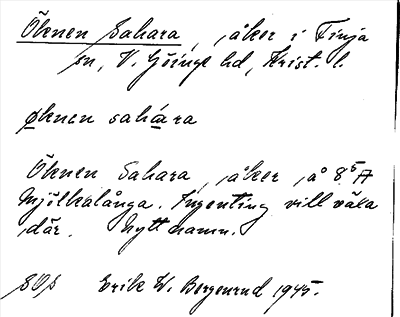 Öknen Sahara, åker i Finja
sn, V. Göinge hd, Krist. l.
øknen sahara
Öknen Sahara, åker, å 8⁵ A
Mjölkalånga. Ingenting vill växa
där. Nytt namn.
SOÅ Erik W. Bergenrud 1945.